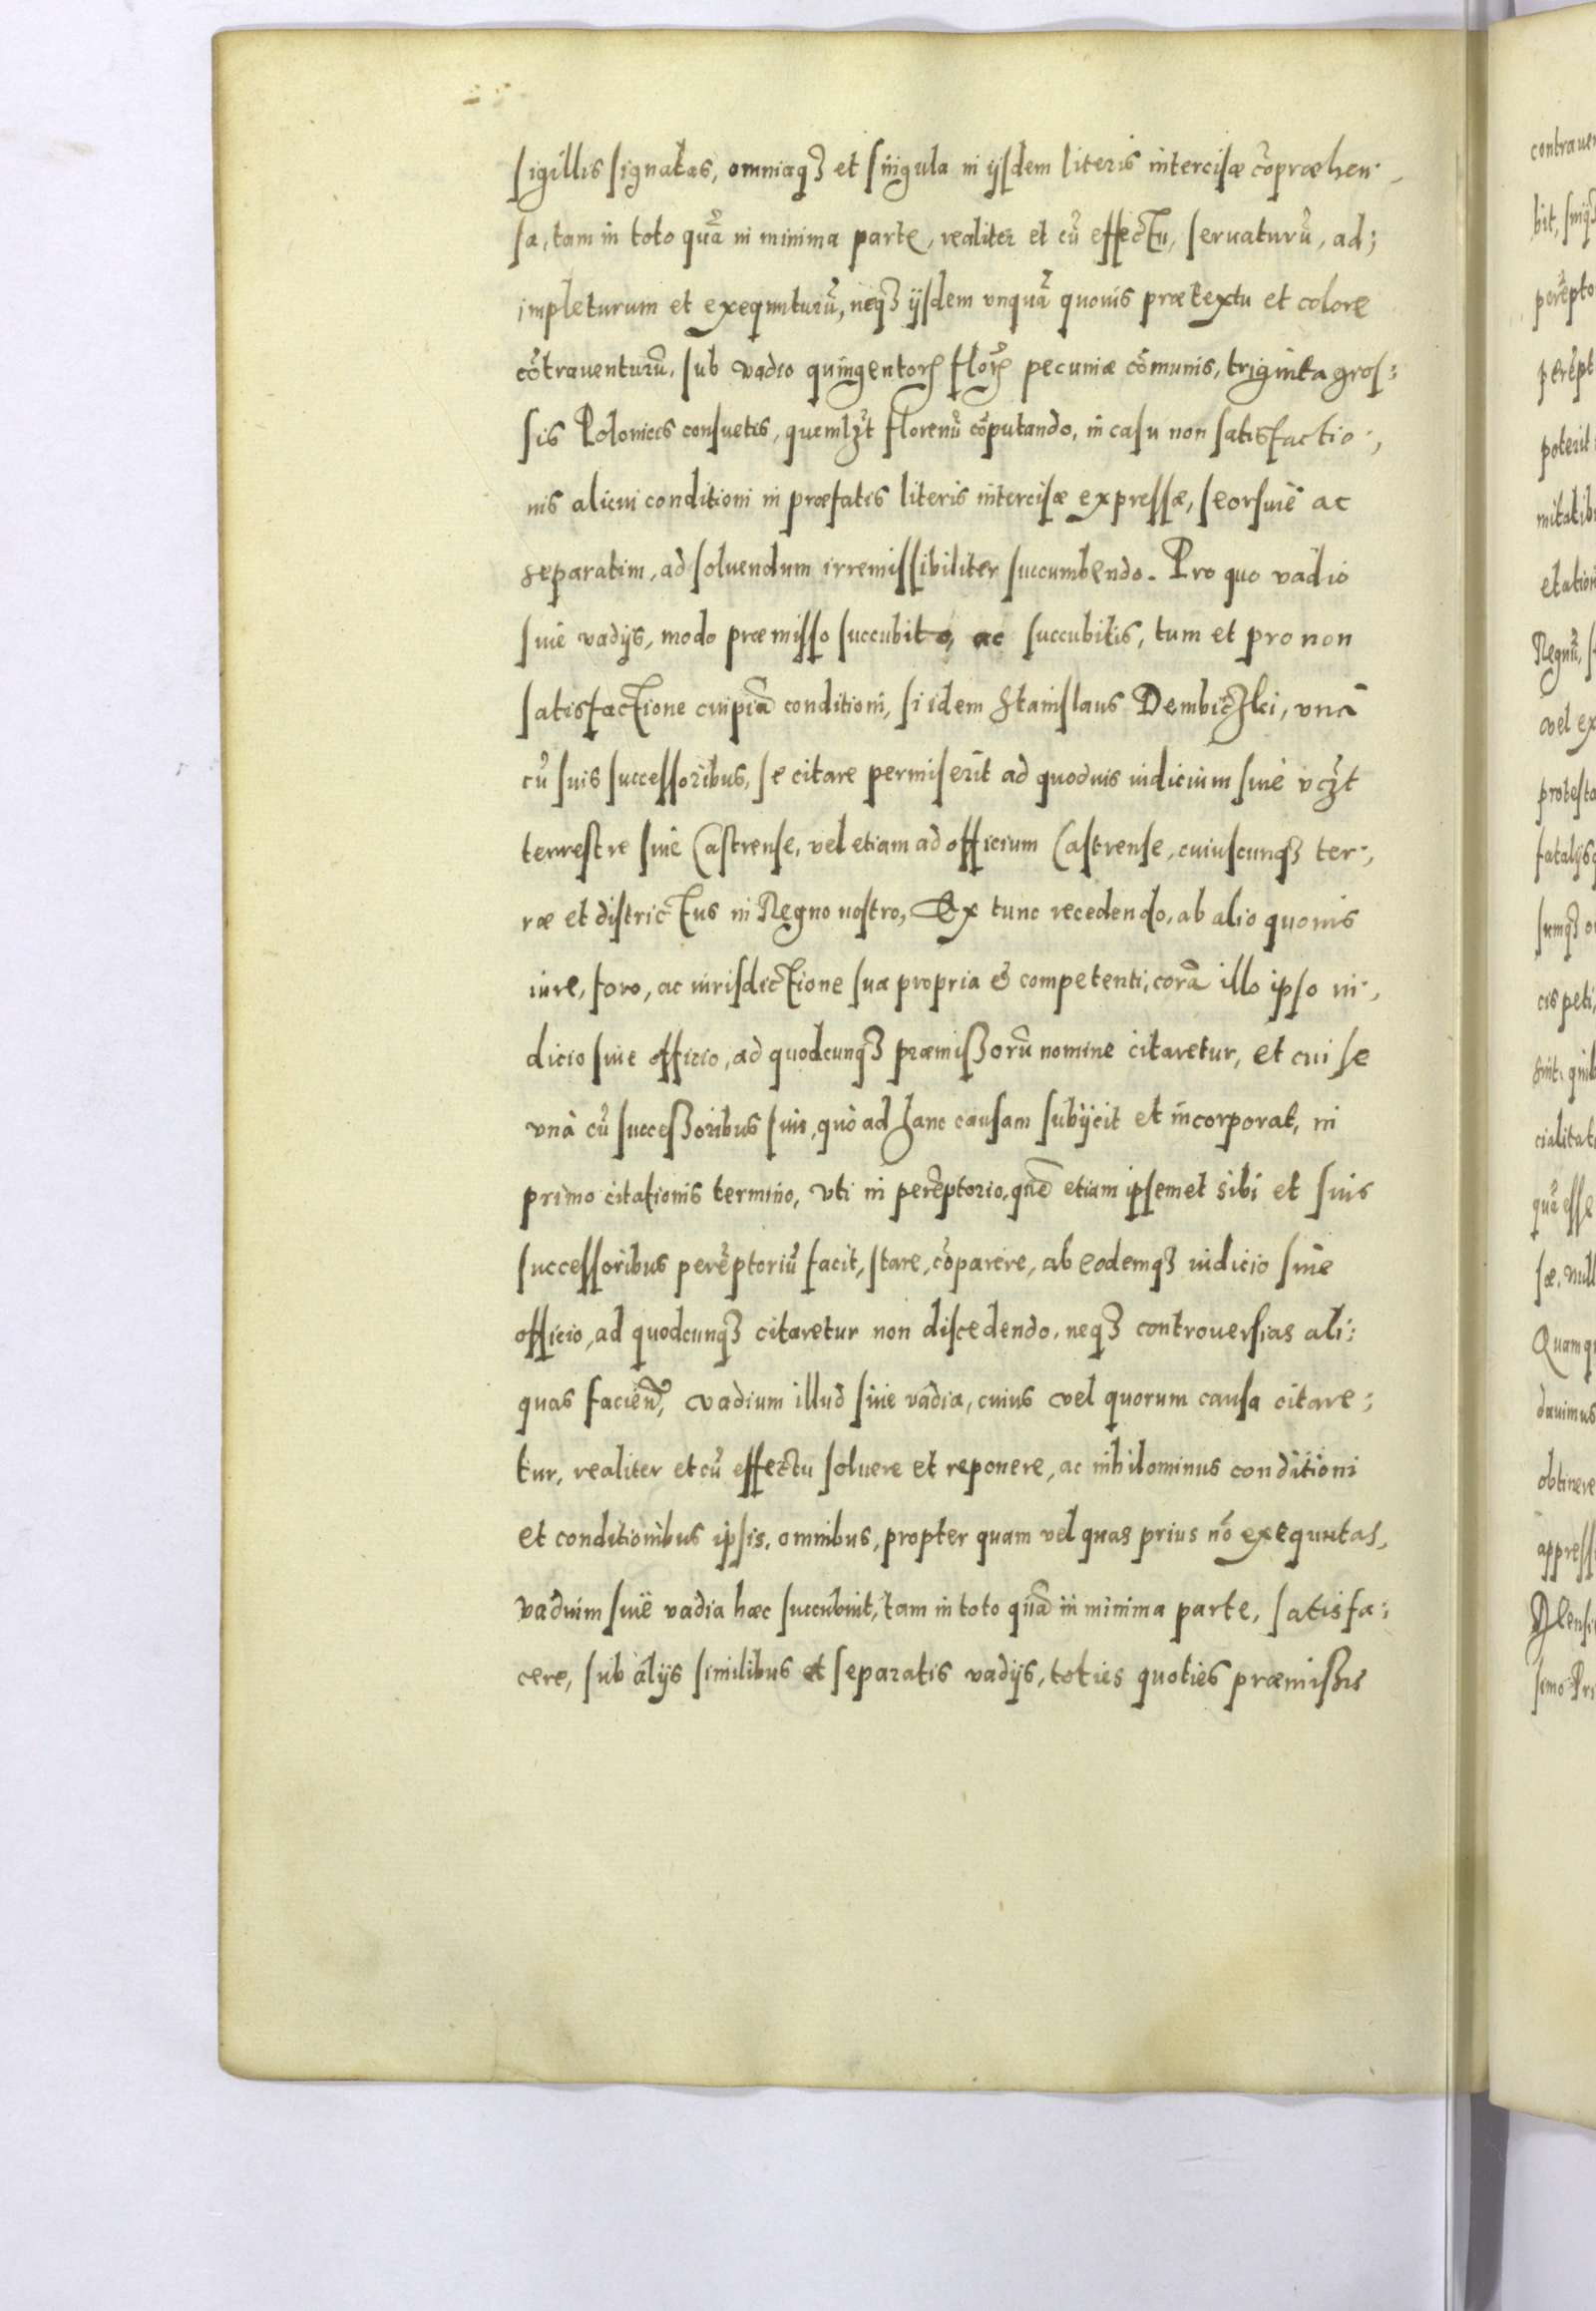 sigillis signatas, omniaqȝ et singula in ijsdem literis intercisæ cõpræhen-
sa, tam in toto quã in minima parte, realiter et cũ effectu, seruaturũ, ad:
impleturum et exequuturũ, neqȝ ijsdem vnquã quouis prætextu et colore
cõtrauenturũ, sub vadio quingentorꝝ florꝝ pecuniæ cõmunis, triginta gros:
sis Polonicis consuetis, quemlȝt florenũ cõputando, in casu non satisfactio-
nis alicui conditioni in præfatis literis intercisæ expressæ, seorsiuè ac
separatim, ad soluendum irremissibiliter succumbendo. Pro quo vadio
siue vadijs, modo præmisso succubito, ac succubitis, tum et pro non
satisfactione cuipiã conditioni, si idem Stanislaus Dembiczki, vnà
cũ suis successoribus, se citare permiserit ad quoduis iudicium siuè vcȝt
terrestre siuè Castrense, vel etiam ad officium Castrense, cuiuscunqȝ ter-
ræ et districtus in Regno nostro, Ex tunc recedendo, ab alio quouis
iure, foro, ac iurisdictione sua propria & competenti, corã illo ipso iu-
dicio siue officio, ad quodcunqȝ præmißorũ nomine citaretur, et cui se
vnà cũ succeßoribus suis, quò ad hanc causam subijcit et incorporat, in
primo citationis termino, vti in perẽptorio, quẽ etiam ipsemet sibi et suis
successoribus perẽptoriũ facit, stare, cõparere, ab eodemqȝ iudicio siuè
officio, ad quodcunqȝ citaretur non discedendo, neqȝ controuersias ali:
quas faciend, vadium illud siue vadia, cuius vel quorum causa citare:
tur, realiter et cũ effectu soluere et reponere, ac nihilominus conditioni
et conditionibus ipsis, omnibus, propter quam vel quas prius nõ exequutas,
vadium siuè vadia hæc succubuit, tam in toto quã in minima parte, satisfa:
cere, sub alijs similibus et separatis vadijs, toties quoties præmißis